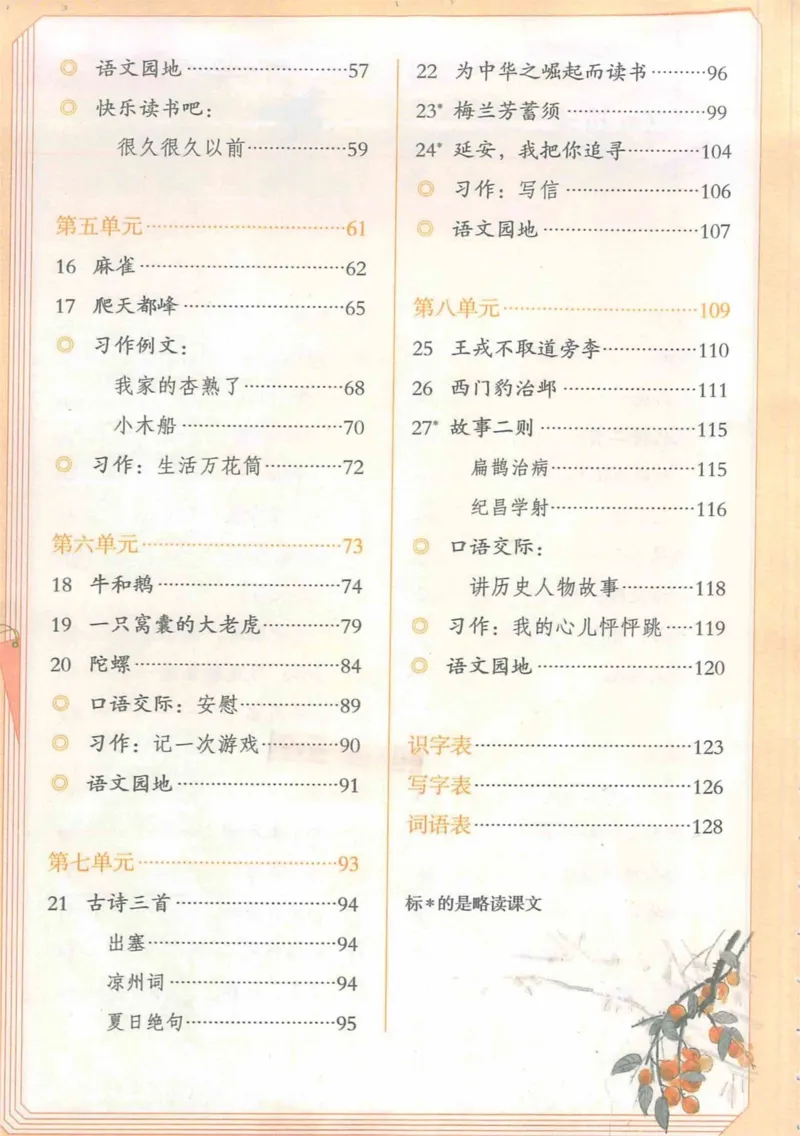 ◎ 语文园地……………………57
◎ 快乐读书吧：
很久很久以前……………59
第五单元……………………61
16 麻雀……………………62
17 爬天都峰………………65
◎ 习作例文：
我家的杏熟了……………68
小木船……………………70
◎ 习作：生活万花筒…………72
第六单元……………………73
18 牛和鹅…………………74
19 一只窝囊的大老虎…………79
20 陀螺……………………84
◎ 口语交际：安慰……………89
◎ 习作：记一次游戏…………90
◎ 语文园地…………………91
第七单元……………………93
21 古诗三首…………………94
出塞………………………94
凉州词……………………94
夏日绝句…………………95
22 为中华之崛起而读书………96
23* 梅兰芳蓄须………………99
24* 延安，我把你追寻…………104
◎ 习作：写信………………106
◎ 语文园地…………………107
第八单元……………………109
25 王戎不取道旁李……………110
26 西门豹治邺………………111
27* 故事二则…………………115
扁鹊治病…………………115
纪昌学射…………………116
◎ 口语交际：
讲历史人物故事……………118
◎ 习作：我的心儿怦怦跳……119
◎ 语文园地…………………120
识字表……………………123
写字表……………………126
词语表……………………128
标*的是略读课文